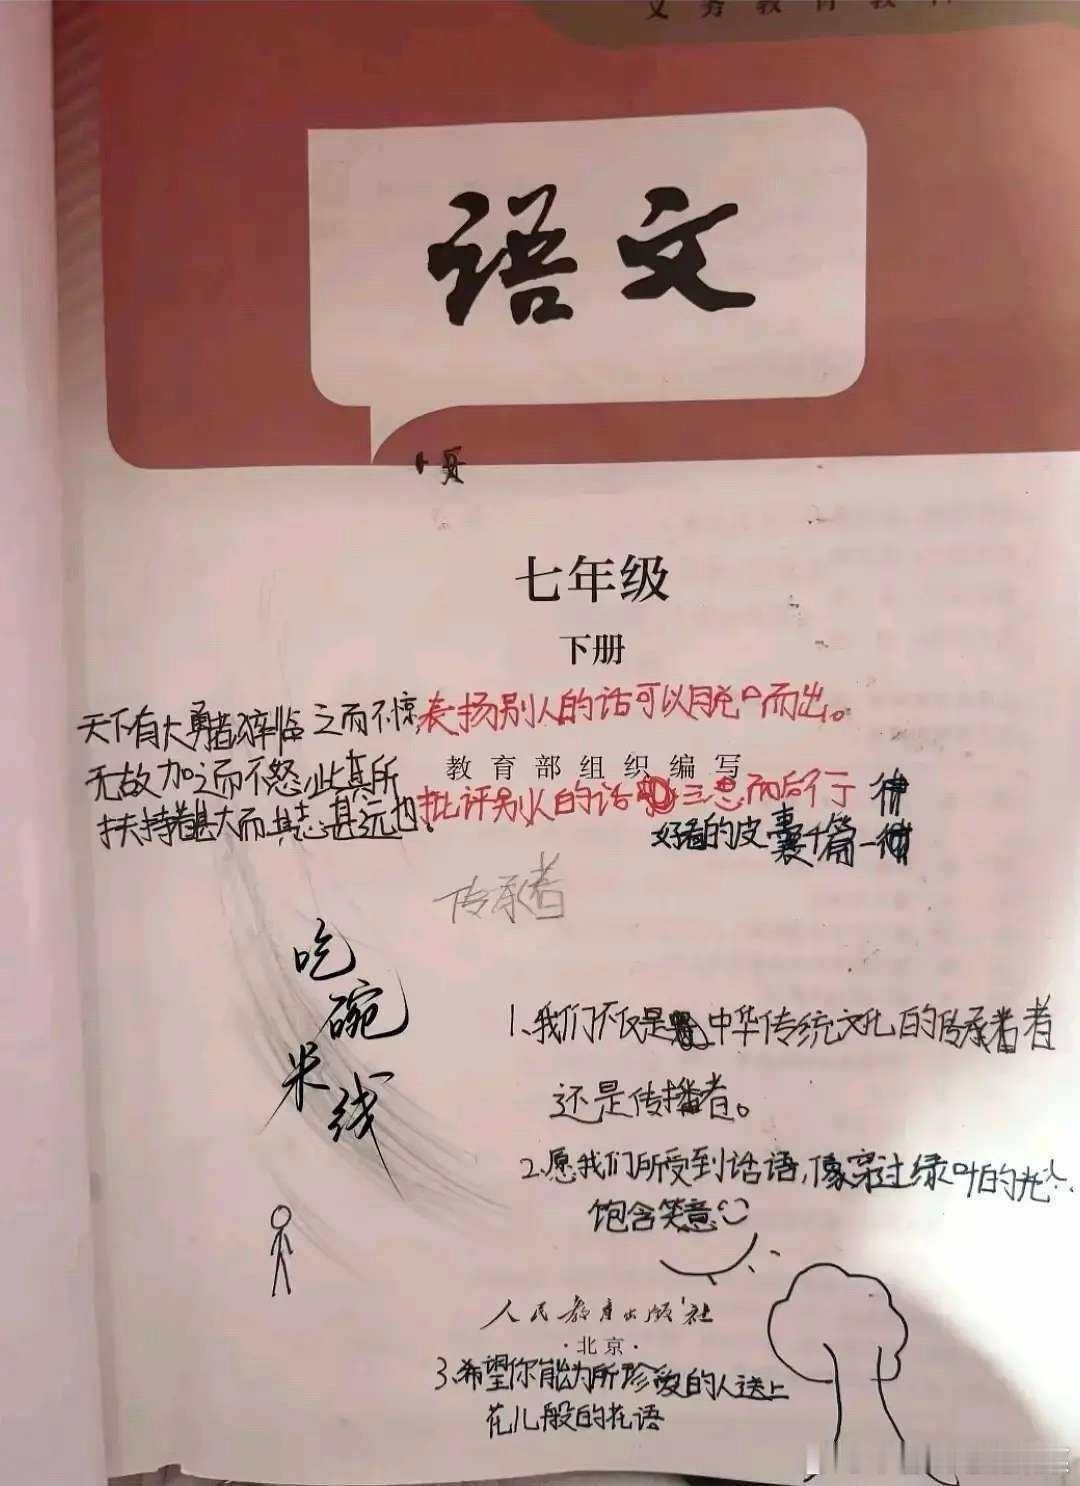 义务教育教科
语文
七年级
下册
天下有大勇者,猝临之而不惊,
无故加之而不怒,此其所
扶持者甚大而其志甚远也。
表扬别人的话可以脱口而出。
教育部组织编写
批评别人的话三思而后行
好看的皮囊千篇一律
传承者
吃碗
米线
1、我们不仅是中华传统文化的传承者
还是传播者。
2、愿我们所受到话语,像穿过绿叶的光
饱含笑意
人民教育出版社
·北京·
3、希望你能为所珍爱的人送上
花儿般的花语